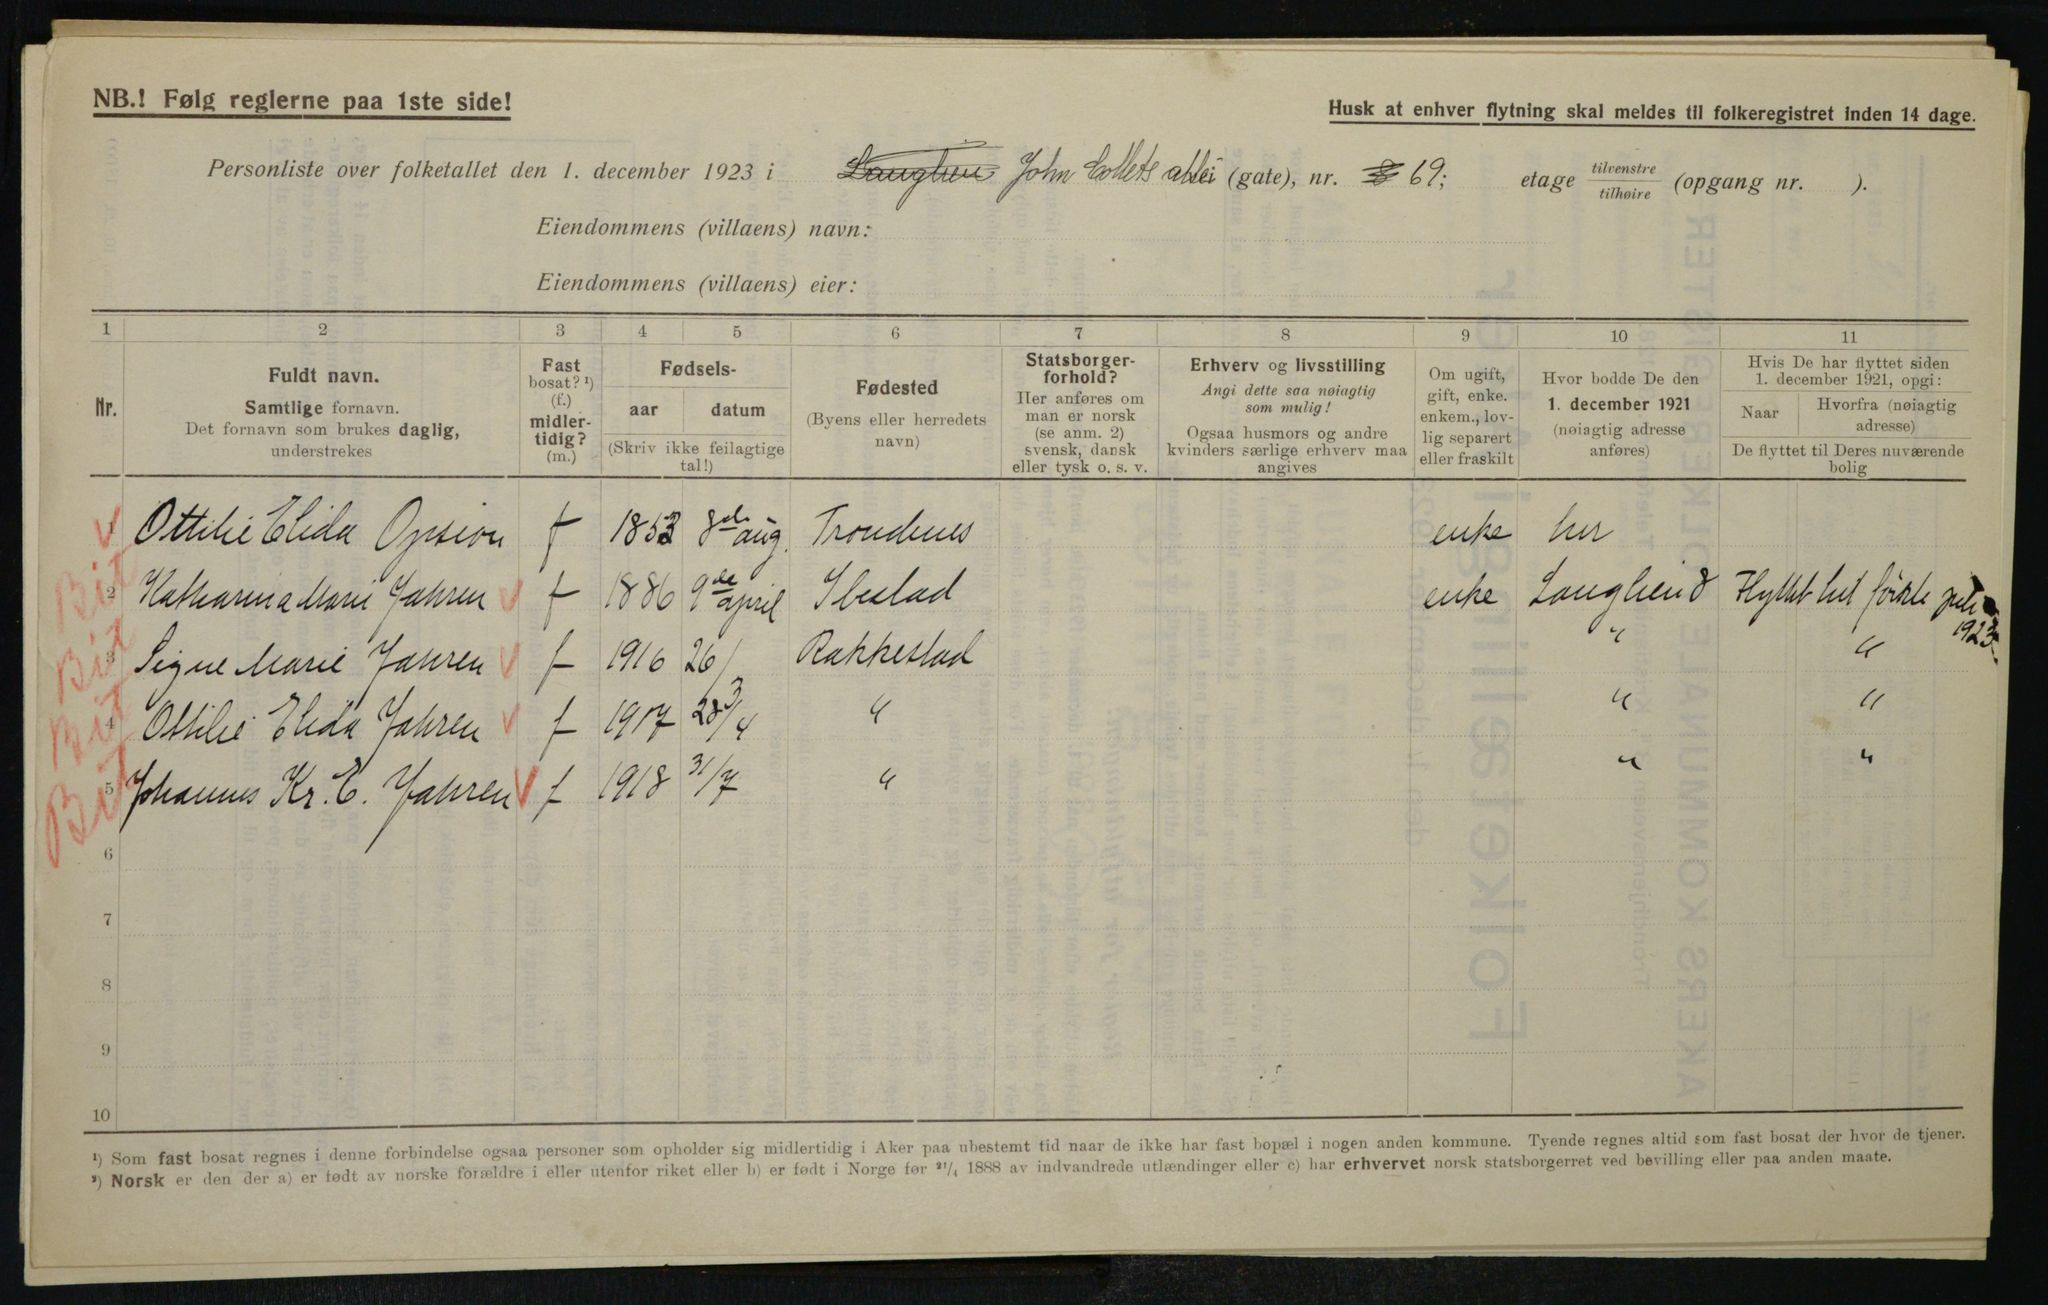 NB.! Følg reglerne paa 1ste side!
Husk at enhver flytning skal meldes til folkeregistret inden 14 dage.
Personliste over folketallet den 1. december 1923 i John Collets allei (gate), nr. 69; etage tilvenstre tilhøire (opgang nr. ).
Eiendommens (villaens) navn:
Eiendommens (villaens) eier:
1 2 3 4 5 6 7 8 9 10 11
Nr.
Fuldt navn.
Samtlige fornavn.
Det fornavn som brukes daglig,
understrekes
Fast
bosat? ¹)
(f.)
midler-
tidig?
(m.)
Fødsels-
aar datum
(Skriv ikke feilagtige
tal!)
Fødested
(Byens eller herredets
navn)
Statsborger-
forhold?
Her anføres om
man er norsk
(se anm. 2)
svensk, dansk
eller tysk o. s. v.
Erhverv og livsstilling
Angi dette saa nøiagtig
som mulig!
Ogsaa husmors og andre
kvinders særlige erhverv maa
angives
Om ugift,
gift, enke.
enkem., lov-
lig separert
eller fraskilt
Hvor bodde De den
1. december 1921
(nøiagtig adresse
anføres)
Hvis De har flyttet siden
1. december 1921, opgi:
Naar
Hvorfra (nøiagtig
adresse)
De flyttet til Deres nuværende
bolig
1 Ottilie Elida f 1853 8de aug. Trondenes enke her
Bit 2 Katharina Marie Jahren f 1886 9de april Ibestad enke 8 Flyttet hit første juli 1923
Bit 3 Signe Marie Jahren f 1916 26/3 Rakkestad " "
Bit 4 Ottilie Elida Jahren f 1917 28/4 " " "
Bit 5 Johannes Kr. E. Jahren f 1918 31/7 " " "
6
7
8
9
10
¹) Som fast bosat regnes i denne forbindelse ogsaa personer som opholder sig midlertidig i Aker paa ubestemt tid naar de ikke har fast bopæl i nogen anden kommune. Tyende regnes altid som fast bosat der hvor de tjener.
²) Norsk er den der a) er født av norske forældre i eller utenfor riket eller b) er født i Norge før ²¹/₄ 1888 av indvandrede utlændinger eller c) har erhvervet norsk statsborgerret ved bevilling eller paa anden maate.